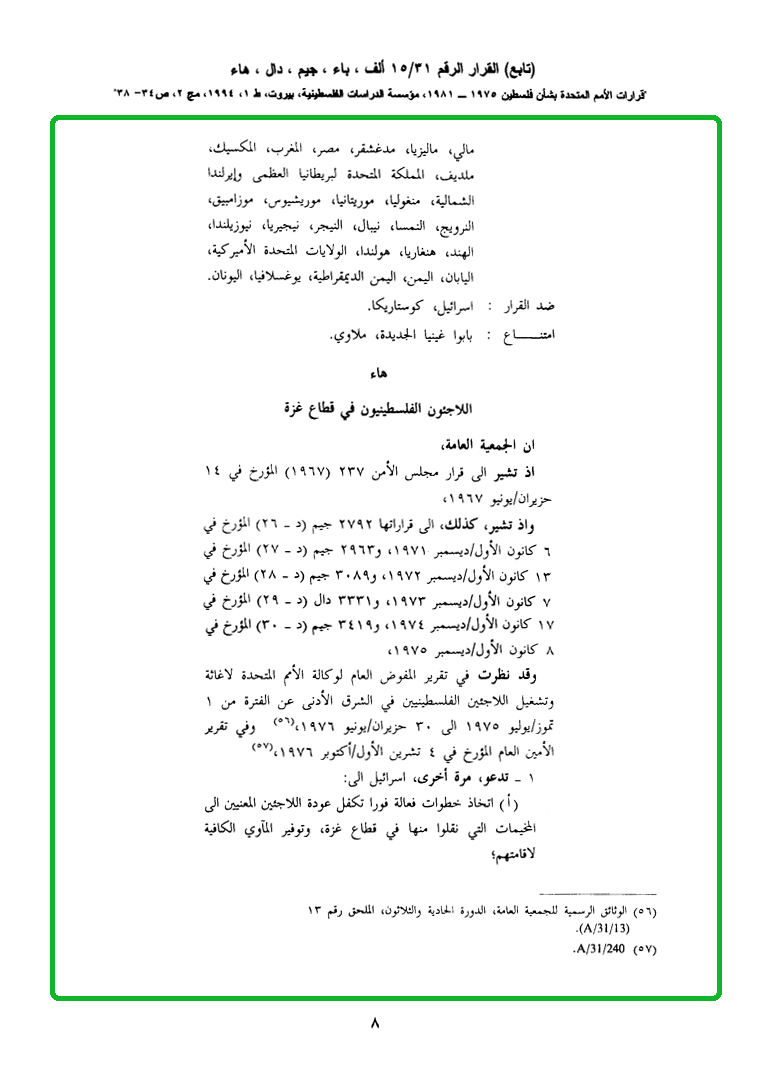 (تابع) القرار الرقم ١٥/٣١ ألف ، باء ، جيم ، دال ، هاء
"قرارات الأمم المتحدة بشأن فلسطين ١٩٧٥ ــ ١٩٨١، مؤسسة الدراسات الفلسطينية، بيروت، ط ١، ١٩٩٤، مج ٢، ص٣٤- ٣٨"
مالي، ماليزيا، مدغشقر، مصر، المغرب، المكسيك،
ملديف، المملكة المتحدة لبريطانيا العظمى وإيرلندا
الشمالية، منغوليا، موريتانيا، موريشيوس، موزامبيق،
النرويج، النمسا، نيبال، النيجر، نيجيريا، نيوزيلندا،
الهند، هنغاريا، هولندا، الولايات المتحدة الأميركية،
اليابان، اليمن، اليمن الديمقراطية، يوغسلافيا، اليونان.
ضد القرار : اسرائيل، كوستاريكا.
امتنـــــاع : بابوا غينيا الجديدة، ملاوي.
هاء
اللاجئون الفلسطينيون في قطاع غزة
ان الجمعية العامة،
اذ تشير الى قرار مجلس الأمن ٢٣٧ (١٩٦٧) المؤرخ في ١٤
حزيران/يونيو ١٩٦٧،
واذ تشير، كذلك، الى قراراتها ٢٧٩٢ جيم (د ـ ٢٦) المؤرخ في
٦ كانون الأول/ديسمبر ١٩٧١، و٢٩٦٣ جيم (د ـ ٢٧) المؤرخ في
١٣ كانون الأول/ديسمبر ١٩٧٢، و٣٠٨٩ جيم (د ـ ٢٨) المؤرخ في
٧ كانون الأول/ديسمبر ١٩٧٣، و٣٣٣١ دال (د ـ ٢٩) المؤرخ في
١٧ كانون الأول/ديسمبر ١٩٧٤، و٣٤١٩ جيم (د ـ ٣٠) المؤرخ في
٨ كانون الأول/ديسمبر ١٩٧٥،
وقد نظرت في تقرير المفوض العام لوكالة الأمم المتحدة لاغاثة
وتشغيل اللاجئين الفلسطينيين في الشرق الأدنى عن الفترة من ١
تموز/يوليو ١٩٧٥ الى ٣٠ حزيران/يونيو ١٩٧٦،(٥٦) وفي تقرير
الأمين العام المؤرخ في ٤ تشرين الأول/أكتوبر ١٩٧٦،(٥٧)
١ ـ تدعو، مرة أخرى، اسرائيل الى:
(أ) اتخاذ خطوات فعالة فورا تكفل عودة اللاجئين المعنيين الى
المخيمات التي نقلوا منها في قطاع غزة، وتوفير المآوي الكافية
لاقامتهم؛
(٥٦) الوثائق الرسمية للجمعية العامة، الدورة الحادية والثلاثون، الملحق رقم ١٣
(A/31/13).
(٥٧) A/31/240.
٨